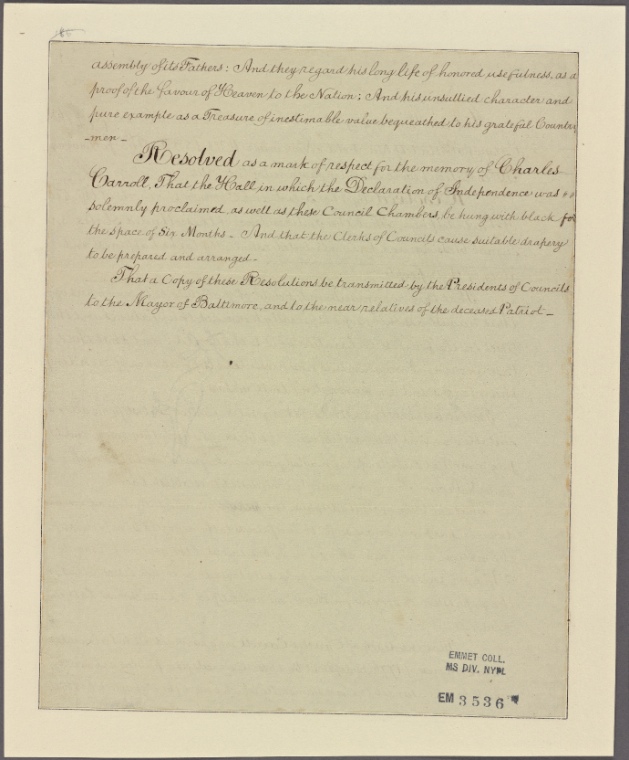 assembly of its Fathers: And they regard his long life of honored usefulness, as a
proof of the favour of Heaven to the Nation; And his unsullied character and
pure example as a Treasure of inestimable value bequeathed to his grateful Country
-men-
Resolved as a mark of respect for the memory of Charles
Carroll, That the Hall in which the Declaration of Independence was so
solemnly proclaimed, as well as these Council Chambers, be hung with black for
the space of Six Months - And that the Clerks of Councils cause suitable drapery
to be prepared and arranged -
That a Copy of these Resolutions, be transmitted by the Presidents of Councils
to the Mayor of Baltimore, and to the near relatives of the deceased Patriot -
EMMET COLL.
MS DIV. NYPL
EM 3536